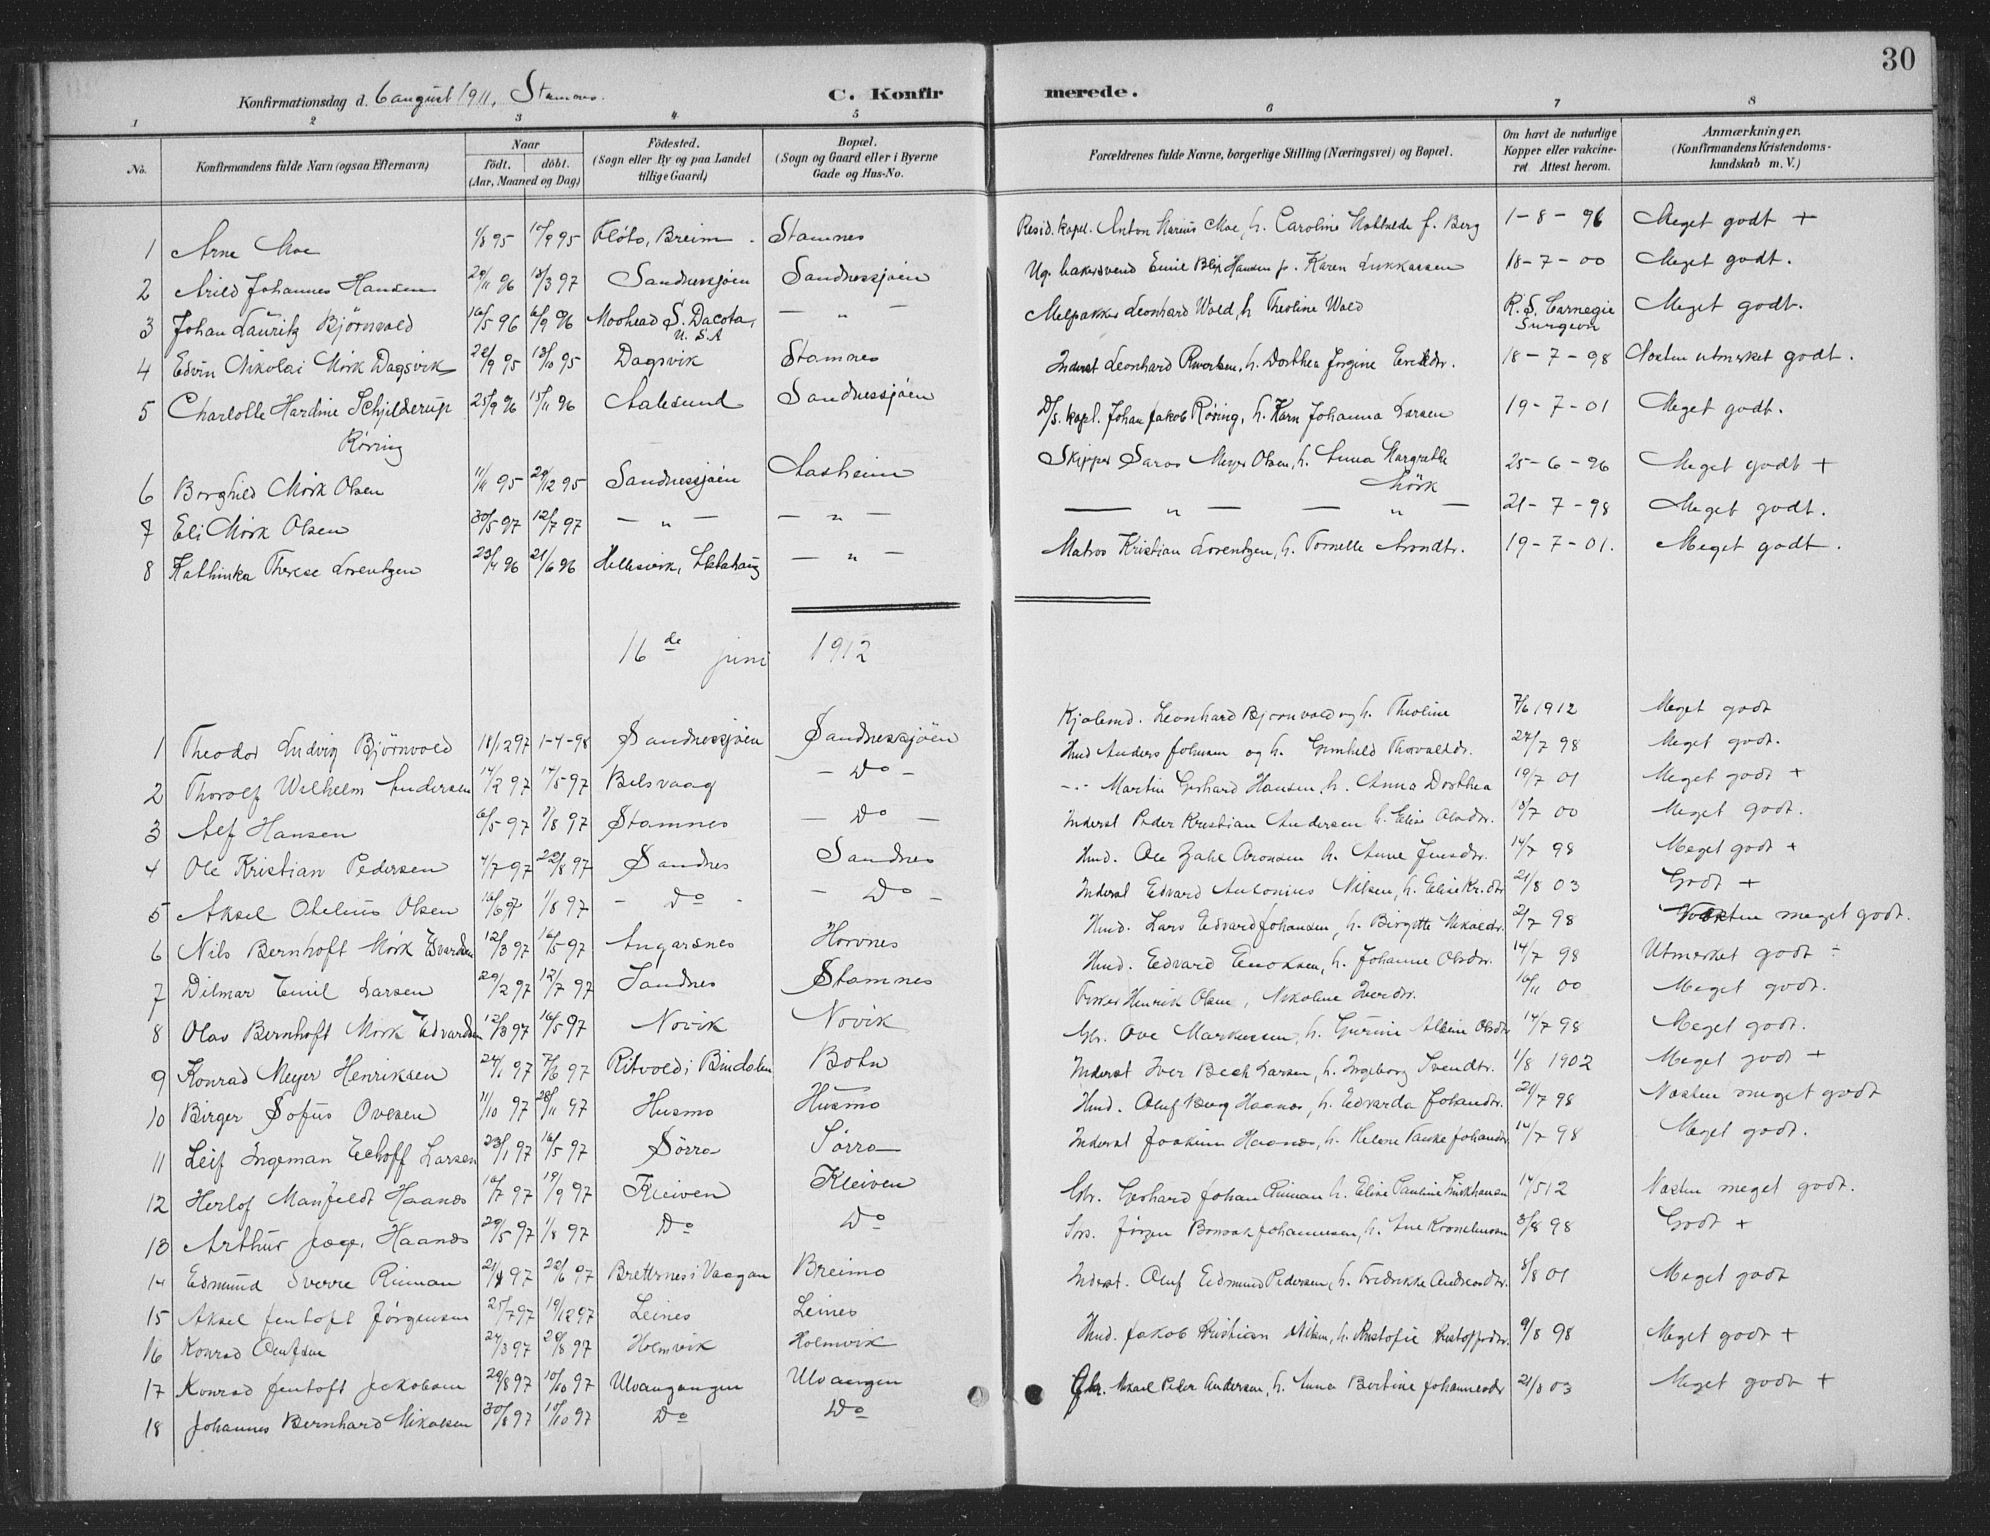 30
Konfirmationsdag d. 6 august 1911, Stamnes.
C. Konfirmerede.
1 2 3 4 5 6 7 8
No. Konfirmandens fulde Navn (ogsaa Efternavn) Naar født. døbt. (Aar, Maaned og Dag) Födested. (Sogn eller By og paa Landet tillige Gaard) Bopæl. (Sogn og Gaard eller i Byerne Gade og Hus-No. Forældrenes fulde Navne, borgerlige Stilling (Næringsvei) og Bopæl. Om havt de naturlige Kopper eller vakcineret Attest herom. Anmærkninger. (Konfirmandens Kristendomskundskab m. V.)
1 Arne Moe 1/8 95 15/9 95 Kløto, Breim. Stamnes Resid. kapel. Anton Marius Moe, h. Caroline Mathilde f. Berg 1-8-96 Meget godt +
2 Arild Johannes Hansen 29/11 96 18/3 97 Sandnessjøen Sandnessjøen Ug. bakersvend Emil Hansen p. Karen Lukkassen 18-7-00 Meget godt.
3 Johan Lauritz Bjørnvold 16/5 96 6/9 96 Moohead S. Dacota, U.S.A — „ — Melpakker Leonhard Wold, h. Theoline Wold R. S. Carnegie Surgeon Meget godt.
4 Edvin Nikolai Mörk Dagsvik 22/9 95 13/10 95 Dagsvik Stamnes Inderst Leonhard h. Dorthea Jorgine Eriksdtr. 18-7-98 Næsten utmerket godt.
5 Charlotte Hardine Schjilderup Røring 25/9 96 15/11 96 Aalesund Sandnessjøen D/s. kapt. Johan Jakob Røring, h. Karn Johanna Larsen 19-7-01 Meget godt.
6 Borghild Mörk Olsen 11/11 95 29/12 95 Sandnessjøen Aasheim Skipper Meyer Olsen, h. Anna Margrethe Mörk 25-6-96 Meget godt +
7 Eli Mörk Olsen 30/5 97 12/7 97 — „ — — „ — — „ — — „ — 21-7-98 Meget godt.
8 Kathinka Therese Lorentzen 23/4 96 21/6 96 Hellesvik, — „ — Matros Kristian Lorentzen, h. Pernelle Arondtr. 19-7-01. Meget godt.
16de juni 1912
1 Theodor Ludvig Bjørnvold 18/12 97 1-4-98 Sandnessjøen Sandnessjøen Kjølemd. Leonhard Bjørnvold og h. Theoline 7/6 1912 Meget godt
2 Thorolf Wilhelm Andersen 14/2 97 14/5 97 Belsvaag — Do — Hmd Anders Johnsen og h. Gunhild Thorvaldsdr. 27/7 98 Meget godt.
3 Alf Hansen 6/5 97 7/8 97 Stamnes — Do — -"- Martin Gerhard Hansen, h. Anna Dorthea 19/7 01 Meget godt +
4 Ole Kristian Pedersen 4/7 97 22/8 97 Sandnes Sandnes Inderst Peder Kristian Andersen h. Elise Olsdtr. 18/7 00 Meget godt.
5 Aksel Otelius Olsen 16/6 97 1/8 97 — Do — — Do — Hmd. Ole Zahl Aronsen h. Anne Jensdtr. 14/7 98 Meget godt +
6 Nils Bernhoft Mörk Edvardsen 12/3 97 16/5 97 Angarsnes Horvnes Inderst Edvard Antonius Nilsen, h. Elise Kr.dtr 21/8 03 Godt +
7 Dilmar Emil Larsen 29/2 97 12/7 97 Sandnes Stamnes Hmd. Lars Edvard Johansen, h. Birgitte Nikoldtr. 2/7 98 Næsten meget godt.
8 Olav Bernhoft Mörk Edvardsen 12/3 97 16/5 97 Novik Novik Hmd. Edvard Enoksen, h. Johanne Olsdtr. 14/7 98 Utmerket godt ÷
9 Konrad Meyer Henriksen 24/1 97 7/6 97 Ritvold i Bindalen Botn Fisker Henrik Olsen, Nikoline Iversdtr. 16/11 00 Meget godt.
10 Birger Sofus Ovesen 11/10 97 28/11 97 Husmo Husmo Gbr. Ove Markussen, h. Gurine Albine Olsdtr 14/7 98 Meget godt.
11 Leif Ingeman Echoff Larsen 23/1 97 16/5 97 Sørra Sørra Inderst Iver Bech Larsen, h. Ingeborg Svendtr. 1/8 1902 Meget godt +
12 Herlof Manfeldt Haanes 16/7 97 19/9 97 Kleiven Kleiven Hmd. Oluf Berg Haanes, h. Edvarda Johansdtr. 21/7 98 Næsten meget godt
13 Arthur Haanes 29/5 97 1/8 97 Do Do Inderst Joakim Haanes, h. Helene Johandtr. 14/7 98 Meget godt.
14 Edmund Sverre Riiman 21/4 97 22/6 97 Brettesnes i Vaagan Breimo Gbr. Gerhard Johan Riiman h. Elise Pauline 14/5 12 Næsten meget godt.
15 Aksel Jentoft Jörgensen 25/7 97 19/12 97 Leines Leines Jörgen Johannesen, h. Ane 3/8 98 Godt +
16 Konrad Olufsen 24/3 97 29/8 97 Holmvik Holmvik Inderst. Oluf Edmund Pedersen, h. Fredrikke Andreasdtr. 8/8 01 Meget godt
17 Konrad Jentoft Jakobsen 29/8 97 10/10 97 Ulvangangen Ulvangen Hmd. Jakob Kristian Nilsen, h. Kristoffersdtr. 9/8 98 Meget godt +
18 Johannes Bernhard Mikalsen 30/8 97 10/10 97 Do Do Gbr. Mikael Peder Andersen, h. Anna Bertine Johannesdr 21/8 03 Meget godt +